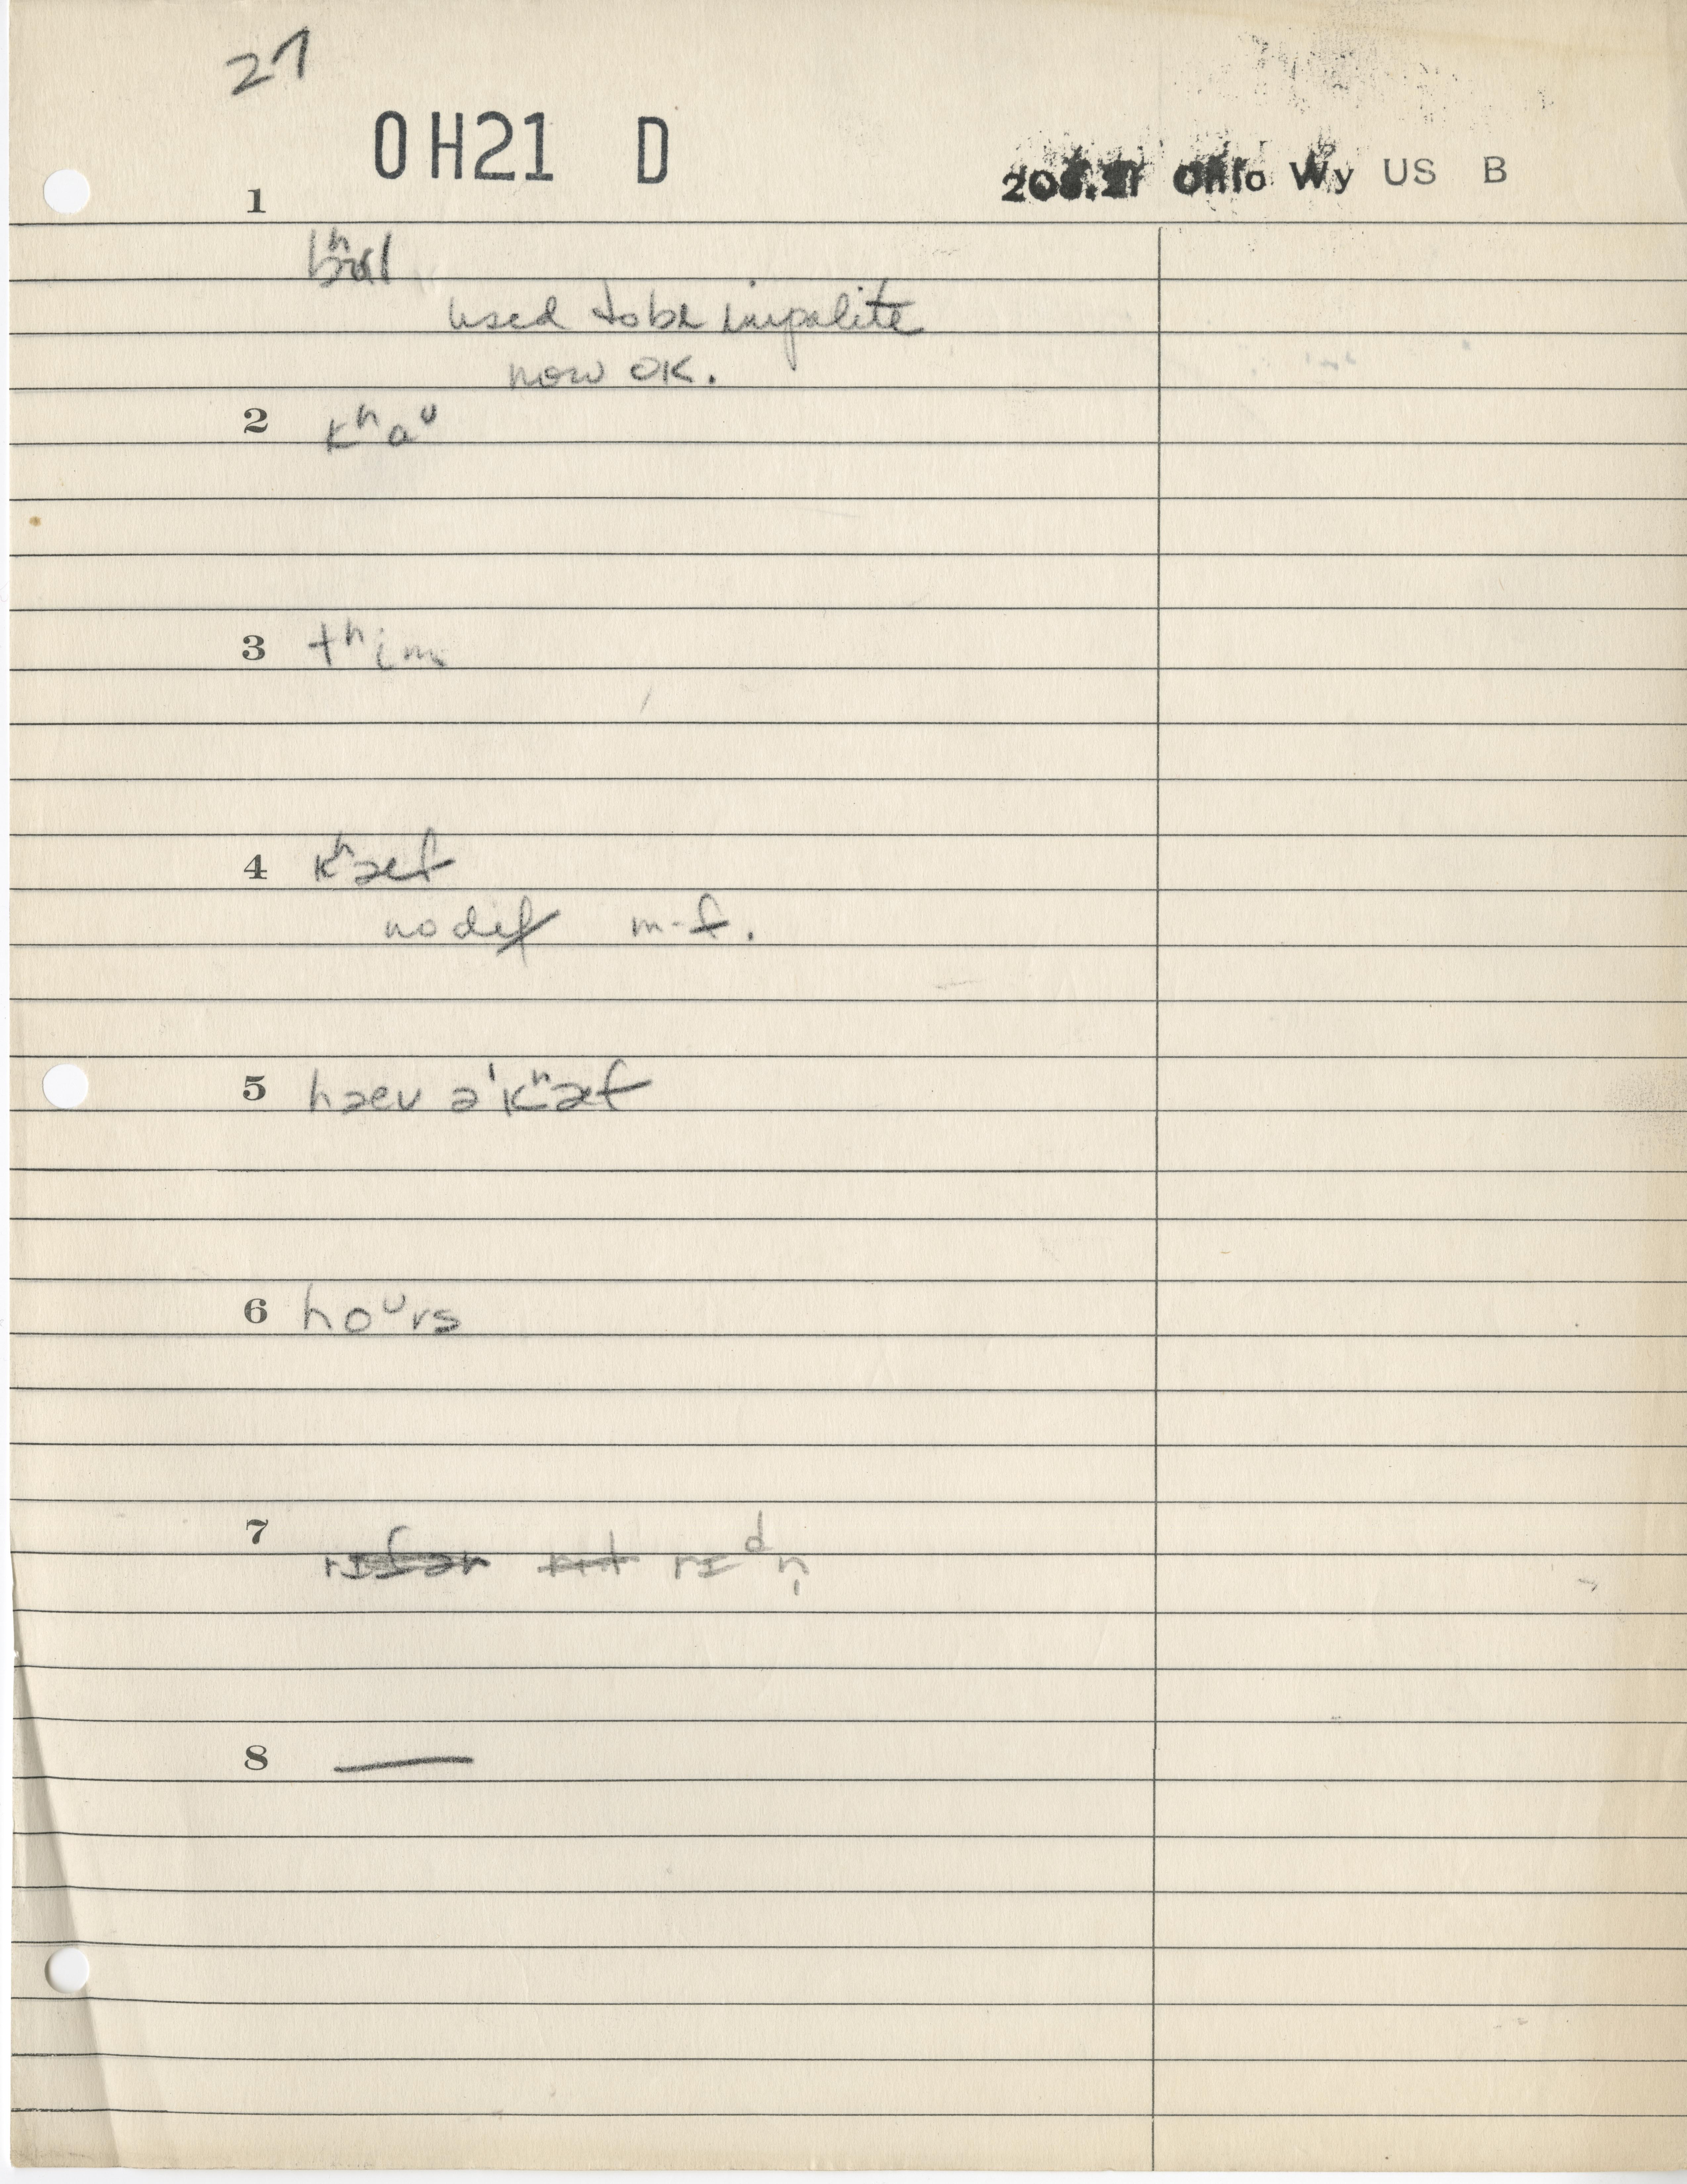 27
OH21 D
208.21 Ohio Wy US B
1
used to be impolite
now OK.
2 kʰaᶸ
3 tʰim
4 kʰæf
no dif m-f.
5 hæv ə'kʰæf
6 hoᶸrs
7 rɪᵈn̩
8 —